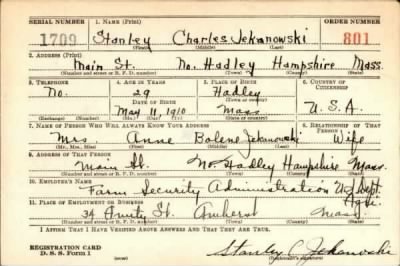 SERIAL NUMBER 1. NAME (Print) ORDER NUMBER
1709 Stanley Charles Jekanowski 801
(First) (Middle) (Last)
2. ADDRESS (Print)
Main St. No. Hadley Hampshire Mass.
(Number and street or R. F. D. number) (Town) (County) (State)
3. TELEPHONE 4. AGE IN YEARS 5. PLACE OF BIRTH 6. COUNTRY OF CITIZENSHIP
No. 29 Hadley
DATE OF BIRTH (Town or county)
May 11 1910 Mass U.S.A.
(Exchange) (Number) (Mo.) (Day) (Yr.) (State or country)
7. NAME OF PERSON WHO WILL ALWAYS KNOW YOUR ADDRESS 8. RELATIONSHIP OF THAT PERSON
Mrs Anne Jekanowski Wife
(Mr., Mrs., Miss) (First) (Middle) (Last)
9. ADDRESS OF THAT PERSON
Main St. No. Hadley Hampshire Mass.
(Number and street or R. F. D. number) (Town) (County) (State)
10. EMPLOYER'S NAME
Farm Security Administration Dept.
11. PLACE OF EMPLOYMENT OR BUSINESS
Amity St. Amherst Mass.
(Number and street or R. F. D. number) (Town) (County) (State)
I AFFIRM THAT I HAVE VERIFIED ABOVE ANSWERS AND THAT THEY ARE TRUE.
REGISTRATION CARD
D. S. S. Form 1 Stanley C. Jekanowski
(Registrant's signature)